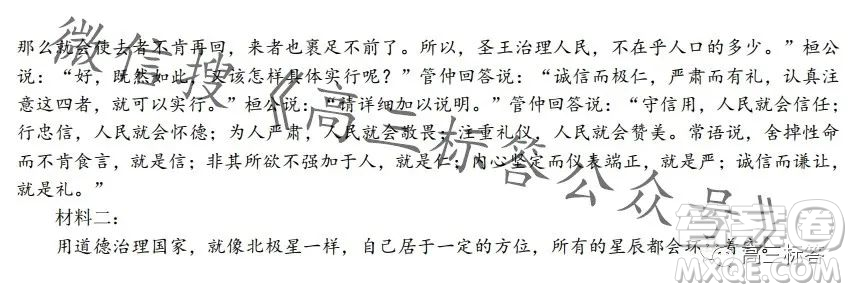 那么就会使去者不肯再回，来者也裹足不前了。所以，圣王治理人民，不在乎人口的多少。”桓公
说：“好，既然如此，又该怎样具体实行呢？”管仲回答说：“诚信而极仁，严肃而有礼，认真注
意这四者，就可以实行。”桓公说：“请详细加以说明。”管仲回答说：“守信用，人民就会信任；
行忠信，人民就会怀德；为人严肃，人民就会敬畏；注重礼仪，人民就会赞美。常语说，舍掉性命
而不肯食言，就是信；非其所欲不强加于人，就是仁；内心坚定而仪表端正，就是严；诚信而谦让，
就是礼。”
材料二：
用道德治理国家，就像北极星一样，自己居于一定的方位，所有的星辰都会环
微信搜《高三标答公众号》
高三标答
答案圈
MXQE.COM